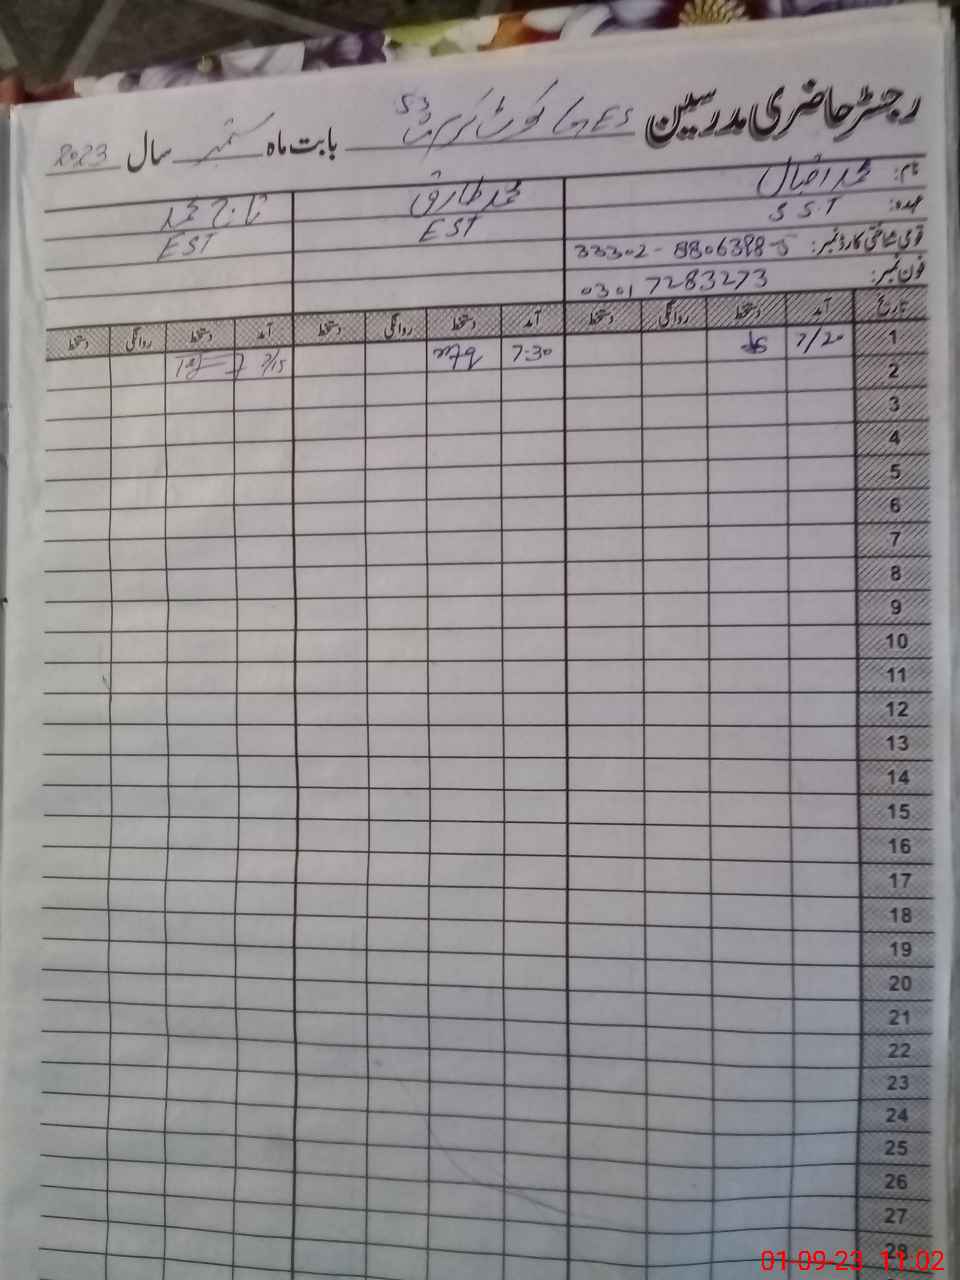 رجسٹر حاضری مدرسین GES کوٹ کرم
بابت ماہ ستمبر سال 2023
نام: محمد اقبال محمد طارق تاج محمد
عہدہ: S.S.T EST EST
قومی شناختی کارڈ نمبر: 33302-8806398-5
فون نمبر: 0301 7283273
تاریخ آمد دستخط روانگی دستخط آمد دستخط روانگی دستخط آمد دستخط روانگی دستخط
1 7/20 7:30 7/15
2
3
4
5
6
7
8
9
10
11
12
13
14
15
16
17
18
19
20
21
22
23
24
25
26
27
28
01-09-23 11:02